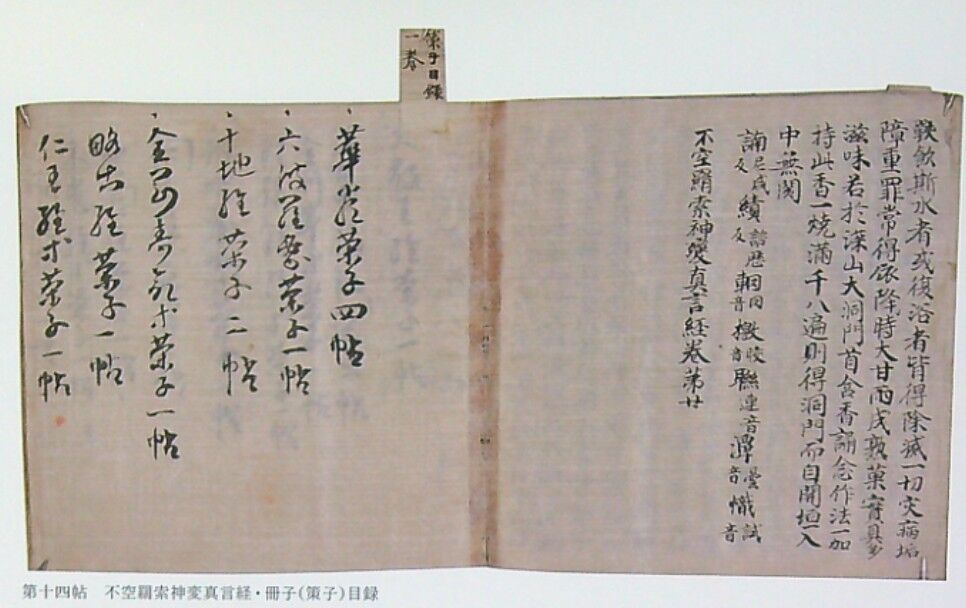 策子目録
一巻
飲斯水者或復浴者皆得除滅一切灾病垢
障重罪常得依降時大甘雨成熟菓實具多
滋味若於深山大洞門首含香誦念作法一加
持此香一燒滿千八遍則得洞門而自開坦一入
中無閡
諵尼咸反績諮歴反 音檄 音聯連音潭曇音幟試音
不空羂索神變真言経卷第廿
華嚴策子四帖
六波羅蜜策子一帖
十地経策子二帖
金剛壽命等策子一帖
略出経策子一帖
仁王経等策子一帖
第十四帖　不空羂索神変真言経・冊子(策子)目録